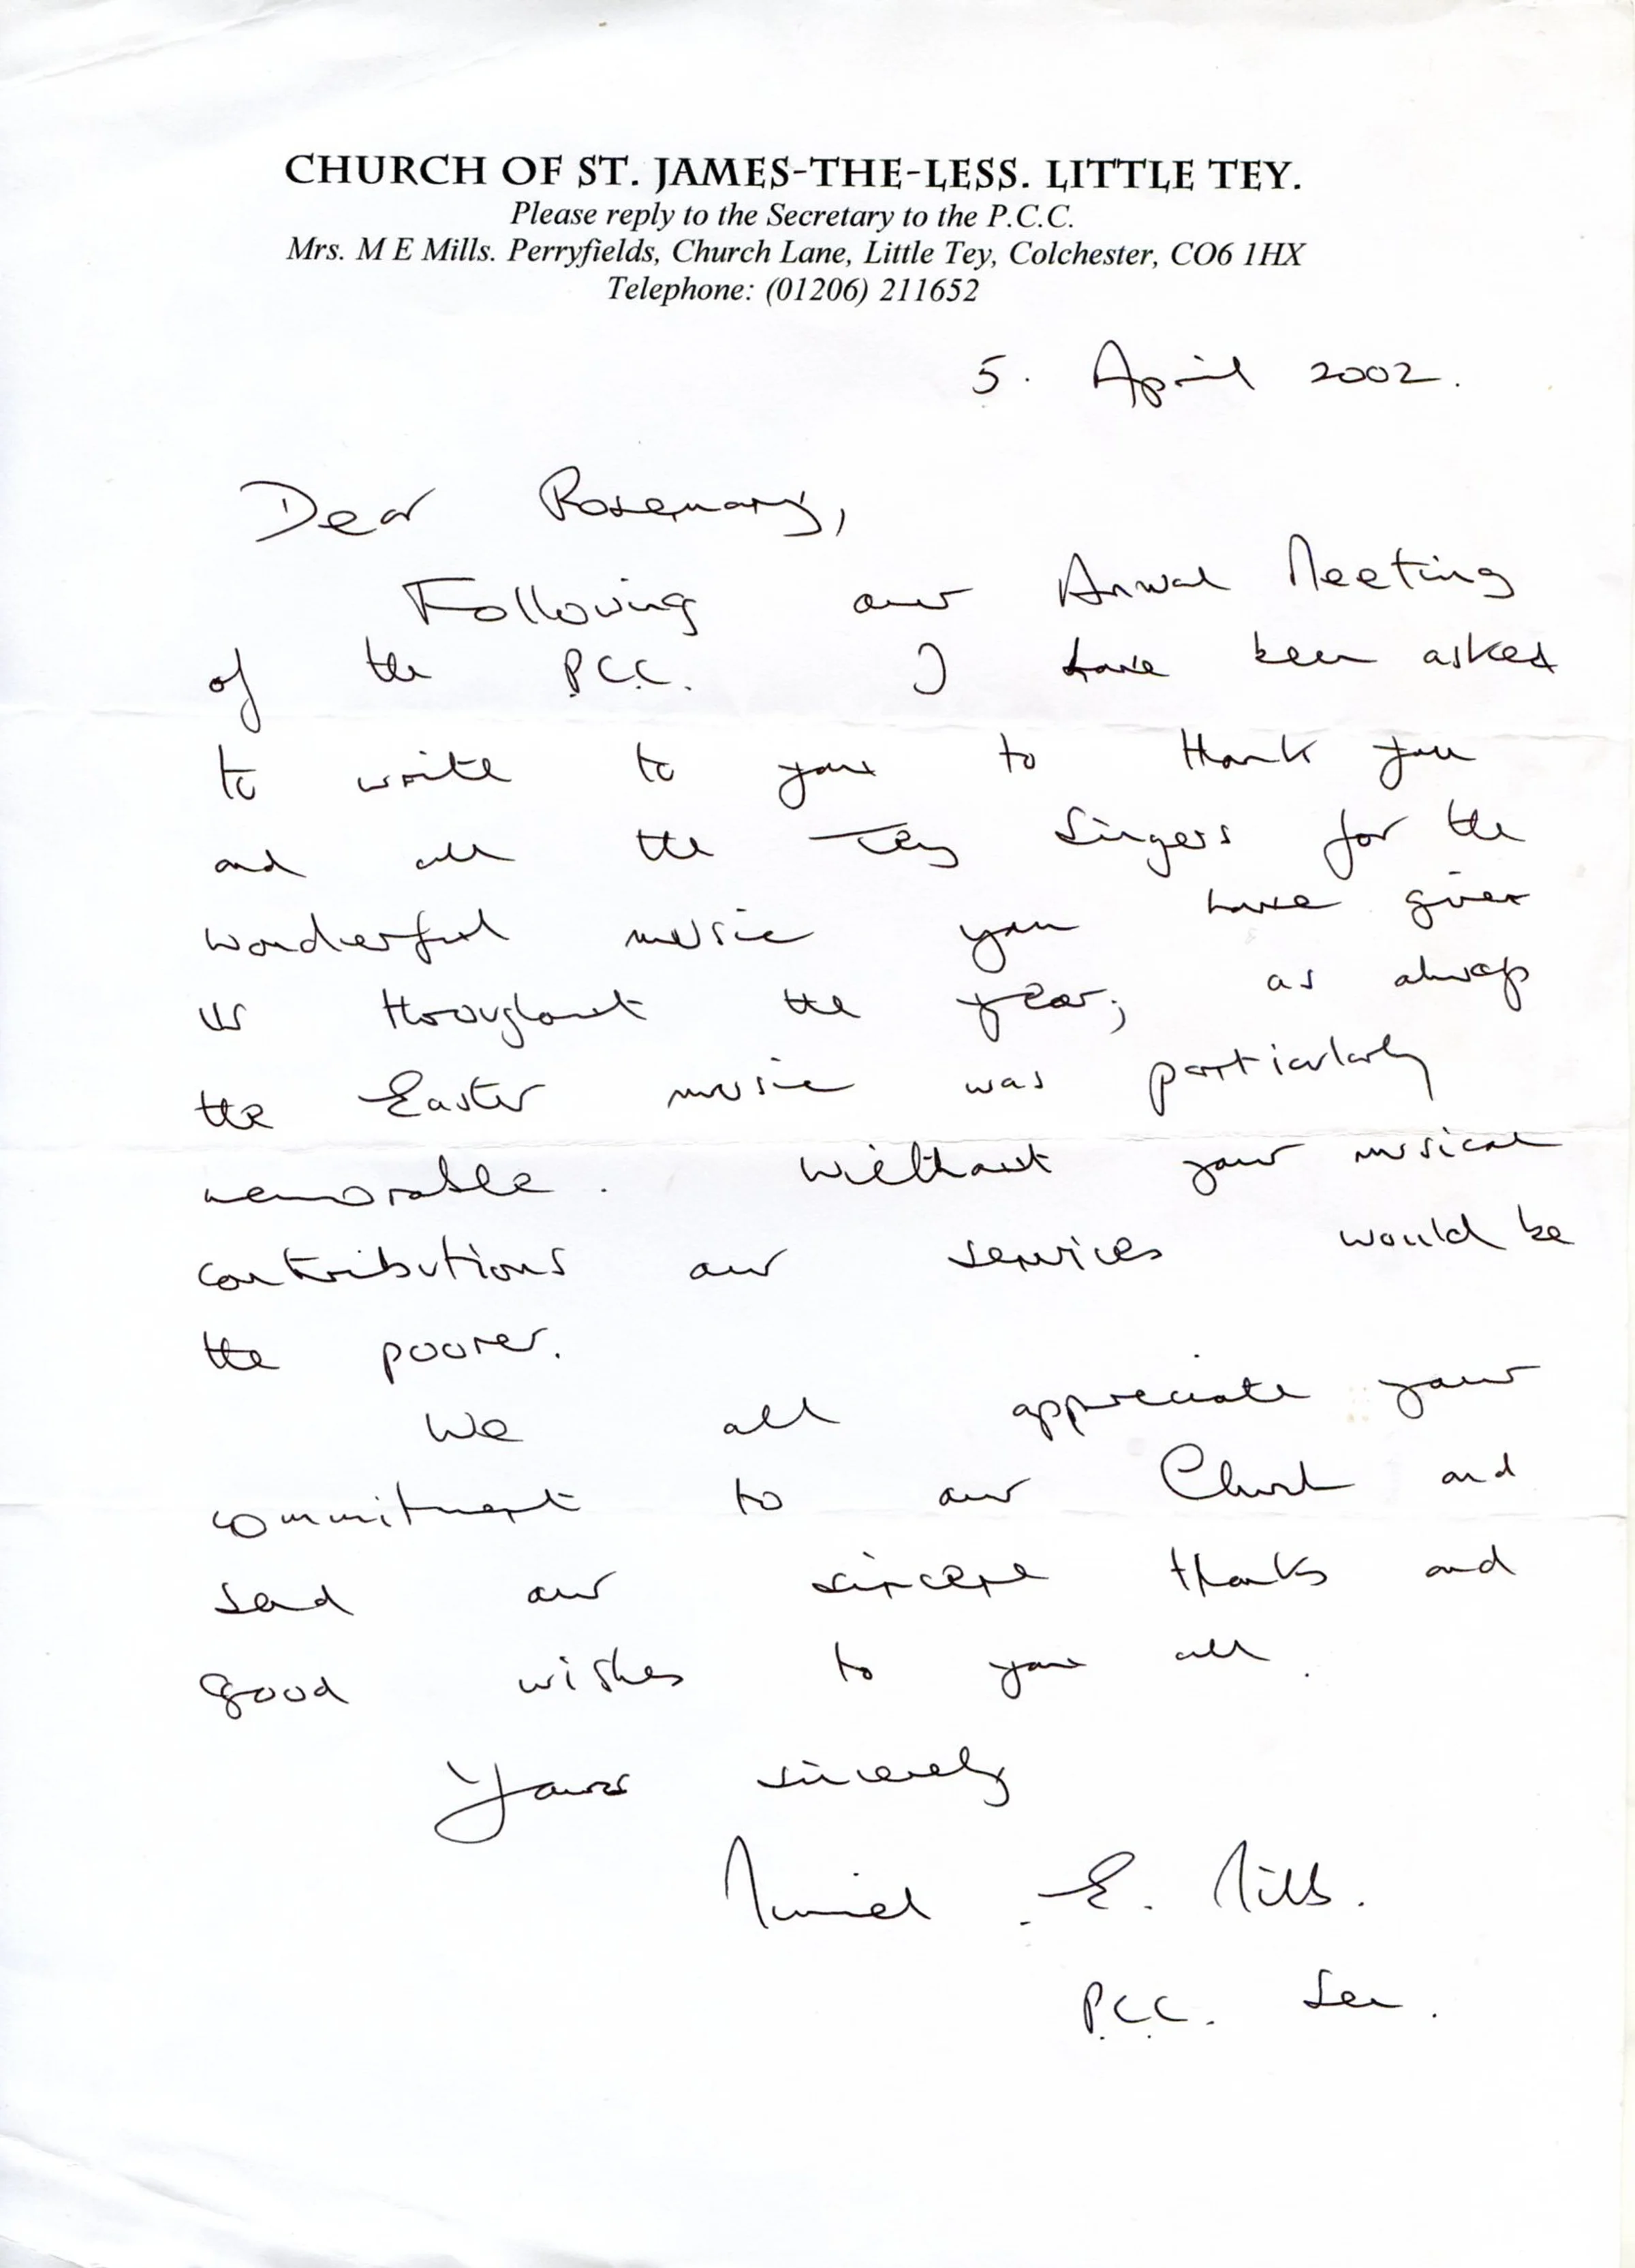 CHURCH OF ST. JAMES-THE-LESS. LITTLE TEY.
Please reply to the Secretary to the P.C.C.
Mrs. M E Mills. Perryfields, Church Lane, Little Tey, Colchester, CO6 1HX
Telephone: (01206) 211652
5. April 2002.
Dear Rosemary,
Following our Annual Meeting
of the P.C.C. I have been asked
to write to you to thank you
and all the Tey Singers for the
wonderful music you have given
us throughout the year; as always
the Easter music was particularly
memorable. Without your musical
contributions our services would be
the poorer.
We all appreciate your
commitment to our Church and
send our sincere thanks and
good wishes to you all.
Yours sincerely
Muriel E. Mills.
P.C.C. Sec.